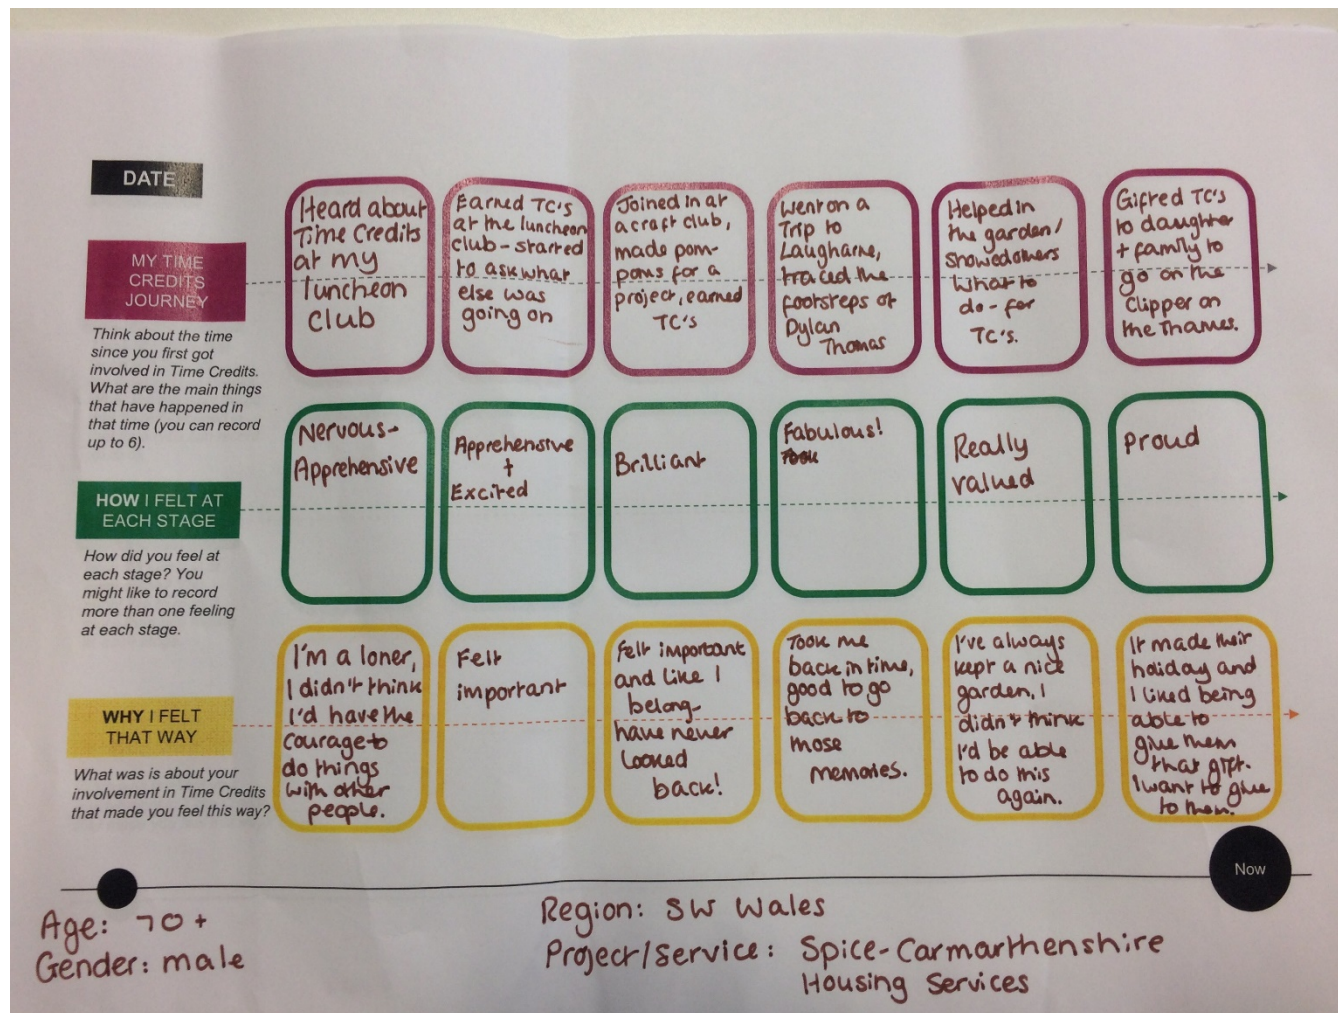 DATE
MY TIME
CREDITS
JOURNEY
Think about the time
since you first got
involved in Time Credits.
What are the main things
that have happened in
that time (you can record
up to 6).
Heard about
Time Credits
at my
luncheon
club
Earned TC's
at the luncheon
club - started
to ask what
else was
going on
Joined in at
a craft club,
made pom-
poms for a
project, earned
TC's
Went on a
Trip to
Laugharne,
traced the
footsteps of
Dylan
Thomas
Helped in
the garden/
showed others
what to
do - for
TC's.
Gifted TC's
to daughter
+ family to
go on the
Clipper on
the Thames.
HOW I FELT AT
EACH STAGE
How did you feel at
each stage? You
might like to record
more than one feeling
at each stage.
Nervous-
Apprehensive
Apprehensive
+
Excited
Brilliant
Fabulous!
Took
Really
valued
Proud
WHY I FELT
THAT WAY
What was is about your
involvement in Time Credits
that made you feel this way?
I'm a loner,
I didn't think
I'd have the
courage to
do things
with other
people.
Felt
important
Felt important
and like I
belong-
have never
looked
back!
Took me
back in time,
good to go
back to
those
memories.
I've always
kept a nice
garden, I
didn't think
I'd be able
to do this
again.
It made their
holiday and
I liked being
able to
give them
that gift.
I want to give
to them.
Now
Age: 70+
Gender: male
Region: SW Wales
Project/Service: Spice-Carmarthenshire
Housing Services